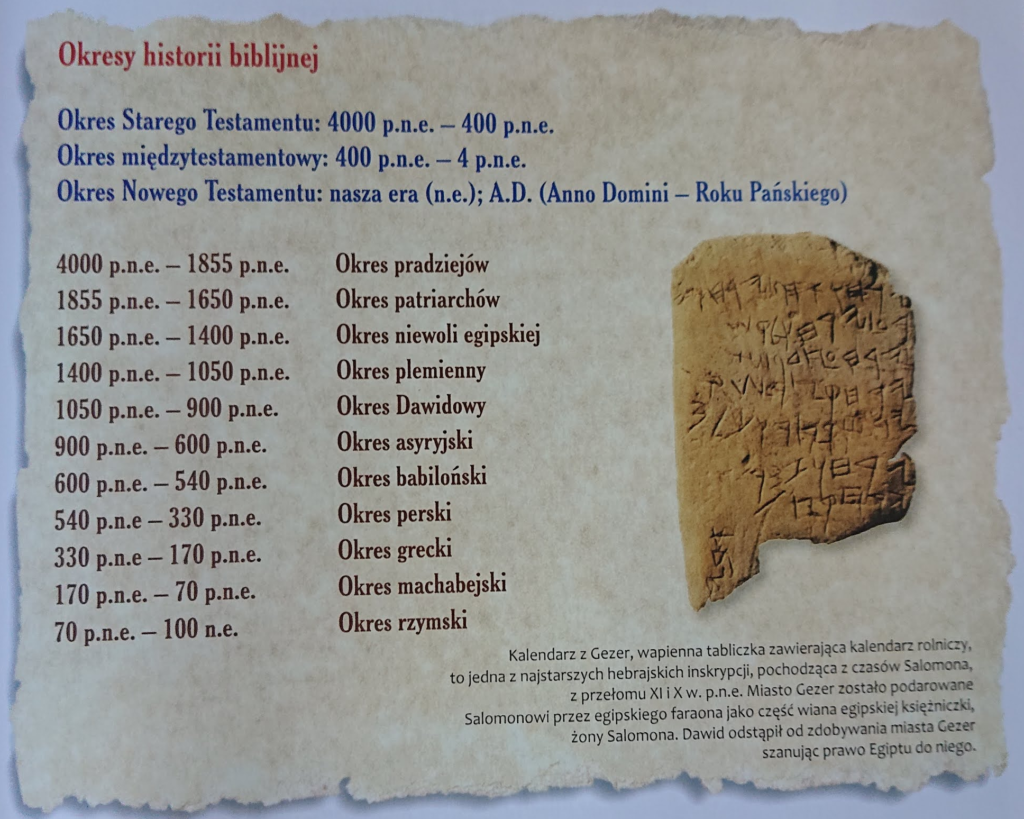 Okresy historii biblijnej
Okres Starego Testamentu: 4000 p.n.e. – 400 p.n.e.
Okres międzytestamentowy: 400 p.n.e. – 4 p.n.e.
Okres Nowego Testamentu: nasza era (n.e.); A.D. (Anno Domini – Roku Pańskiego)
4000 p.n.e. – 1855 p.n.e. Okres pradziejów
1855 p.n.e. – 1650 p.n.e. Okres patriarchów
1650 p.n.e. – 1400 p.n.e. Okres niewoli egipskiej
1400 p.n.e. – 1050 p.n.e. Okres plemienny
1050 p.n.e. – 900 p.n.e. Okres Dawidowy
900 p.n.e. – 600 p.n.e. Okres asyryjski
600 p.n.e. – 540 p.n.e. Okres babiloński
540 p.n.e – 330 p.n.e. Okres perski
330 p.n.e – 170 p.n.e. Okres grecki
170 p.n.e. – 70 p.n.e. Okres machabejski
70 p.n.e. – 100 n.e. Okres rzymski
Kalendarz z Gezer, wapienna tabliczka zawierająca kalendarz rolniczy,
to jedna z najstarszych hebrajskich inskrypcji, pochodząca z czasów Salomona,
z przełomu XI i X w. p.n.e. Miasto Gezer zostało podarowane
Salomonowi przez egipskiego faraona jako część wiana egipskiej księżniczki,
żony Salomona. Dawid odstąpił od zdobywania miasta Gezer
szanując prawo Egiptu do niego.